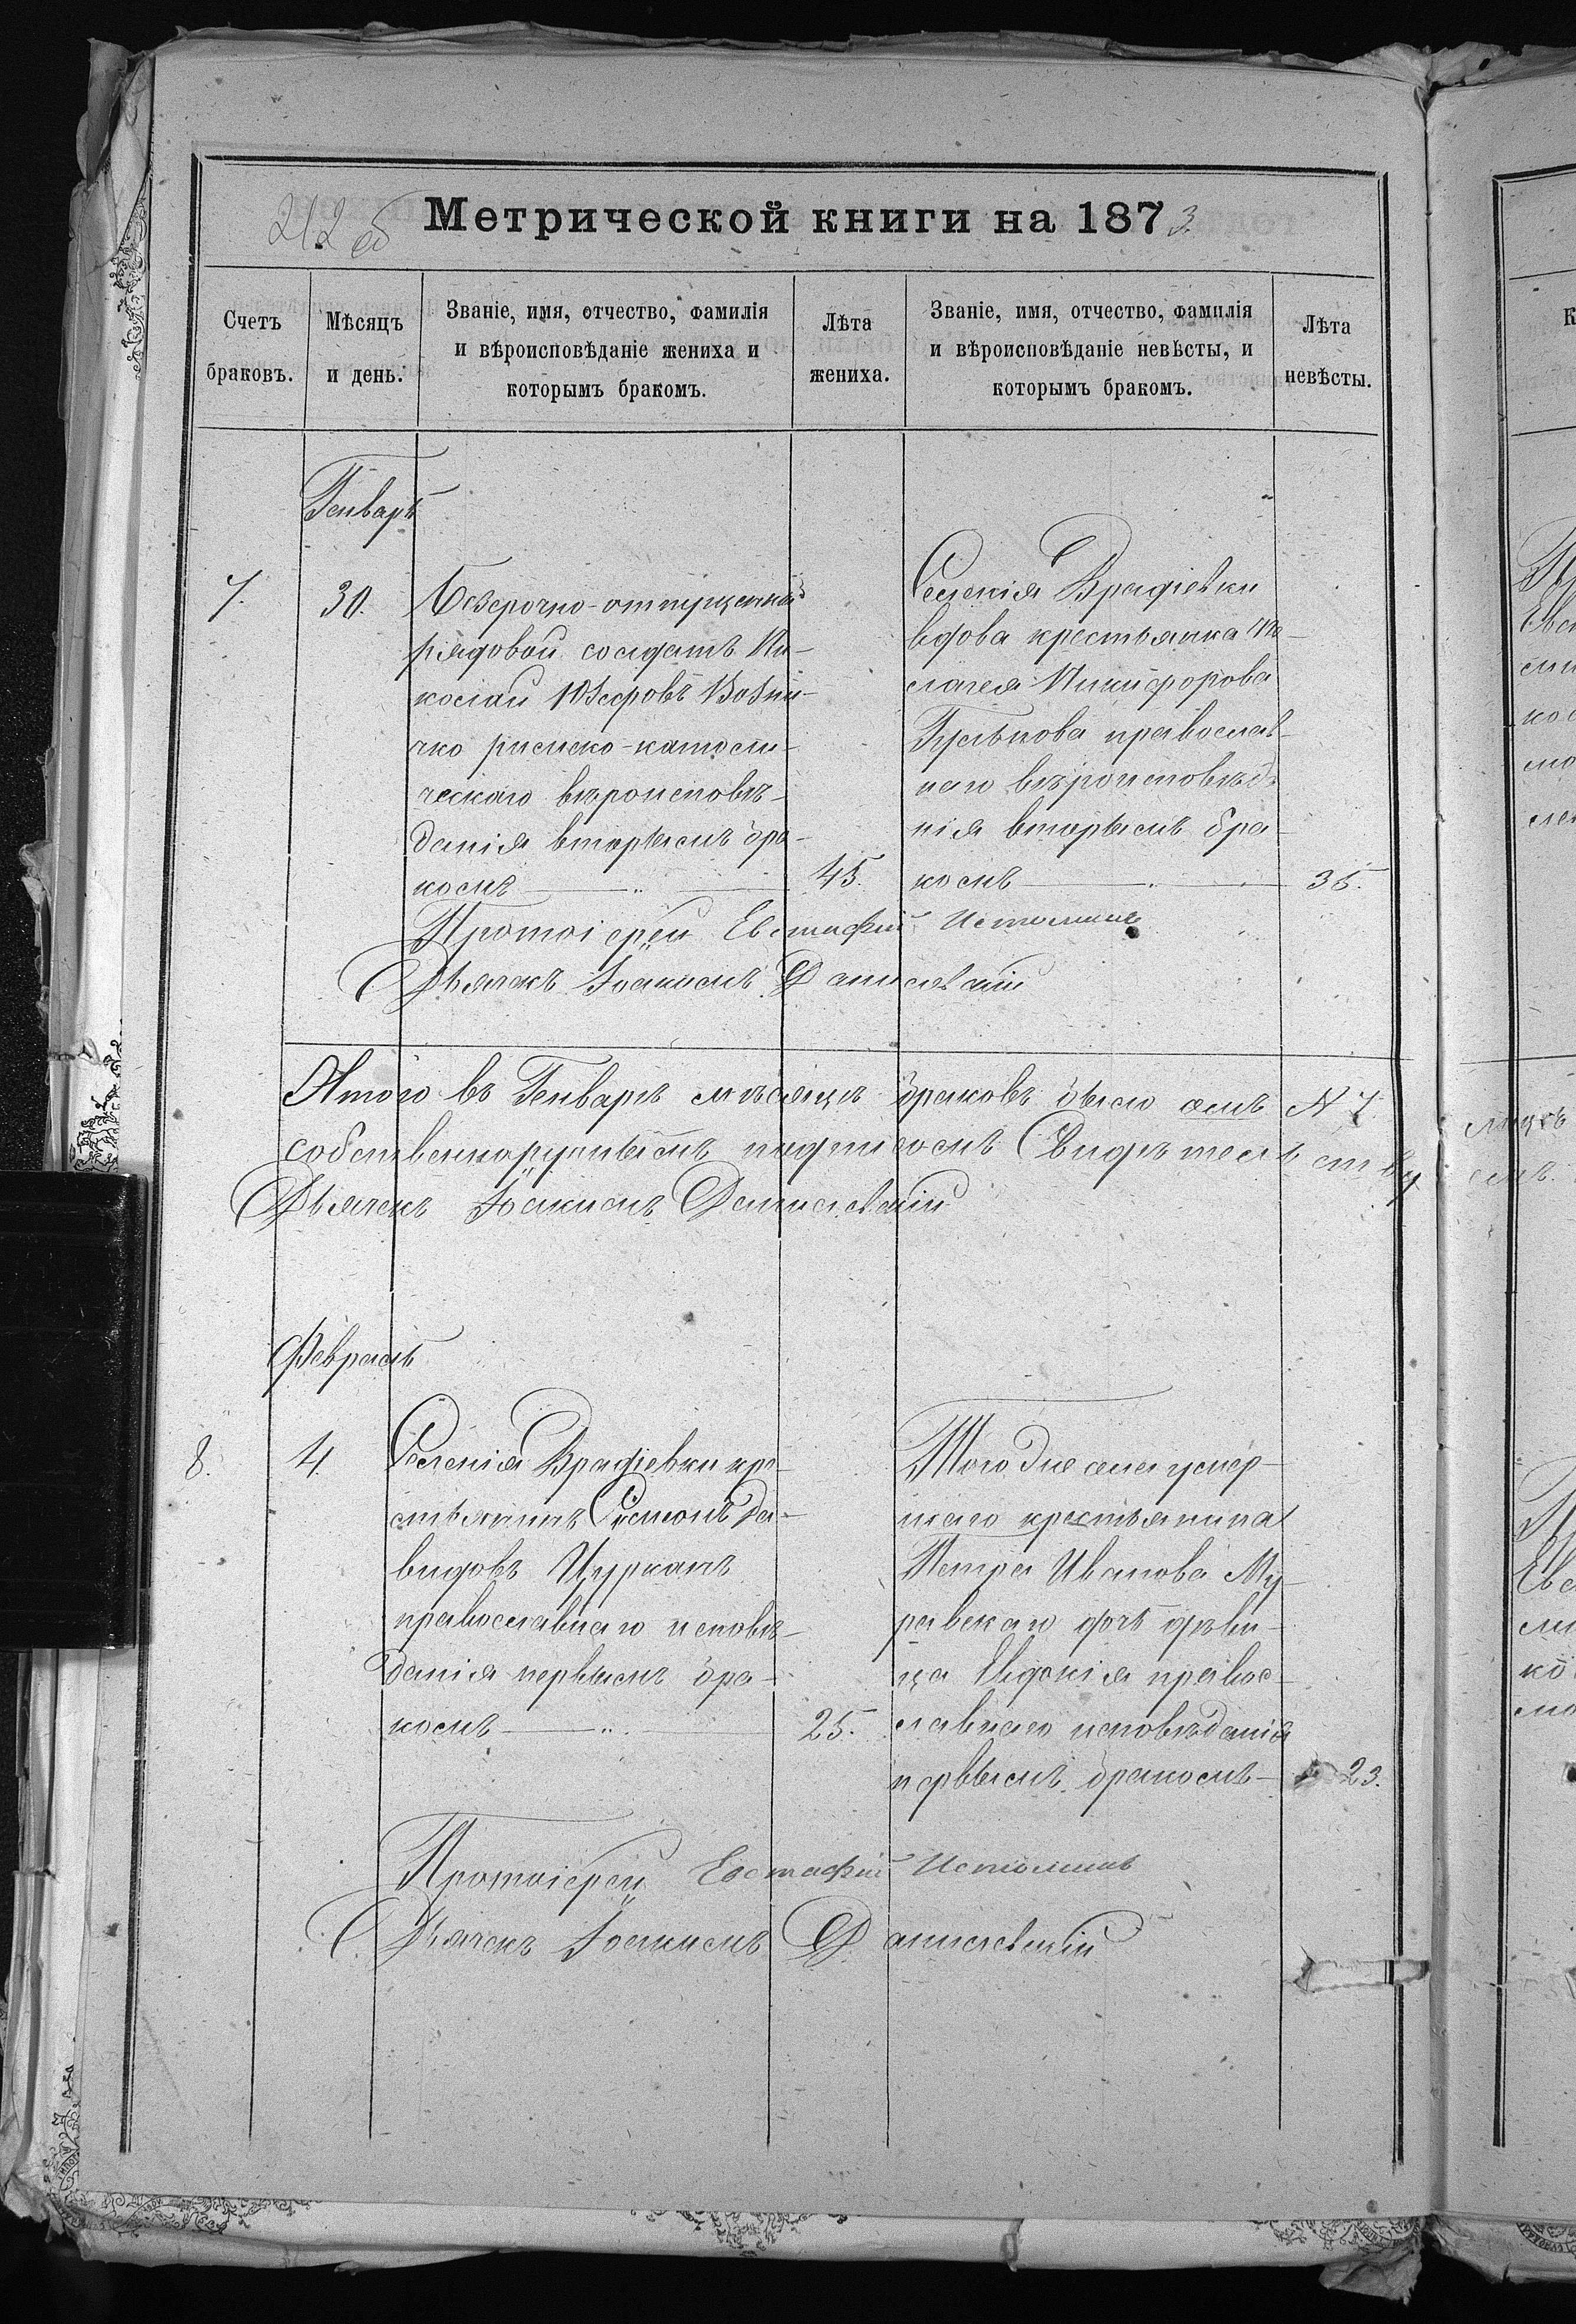 212 об
Метрической книги на 1873
Счетъ браковъ.
Мѣсяцъ и день.
Званіе, имя, отчество, фамилія и вѣроисповѣданіе жениха и которымъ бракомъ.
Лѣта жениха.
Званіе, имя, отчество, фамилія и вѣроисповѣданіе невѣсты, и которымъ бракомъ.
Лѣта невѣсты.
Генварь
7.
30.
Безсрочно-отпускный
рядовой солдатъ Ни-
колай Юзефовъ Возни-
чко римско-католи-
ческаго вѣроисповѣ-
данія вторымъ бра-
комъ
45.
Селенія Врадіевки
вдова крестьянка
Никифорова
православ-
наго вѣроисповѣда-
нія вторымъ бра-
комъ
35.
Протоіерей Евстафій Истоминъ
Дьячекъ Іоакимъ Данилевскій
Итого въ Генварѣ мѣсяцѣ браковъ было семь N 7.
собственноручнымъ подписомъ Свидѣтельствую
Дьячекъ Іоакимъ Данилевскій
Февраль
8.
4.
Селенія Врадіевки кре-
стьянинъ Симеонъ Да-
видовъ Цурканъ
православнаго исповѣ-
данія первымъ бра-
комъ
25.
Того же села умер-
шаго крестьянина
Петра Иванова Му-
равскаго дочь дѣви-
ца Евдокія правос-
лавнаго исповѣданія
первымъ бракомъ
23.
Протоіерей Евстафій Истоминъ
Дьячекъ Іоакимъ Данилевскій